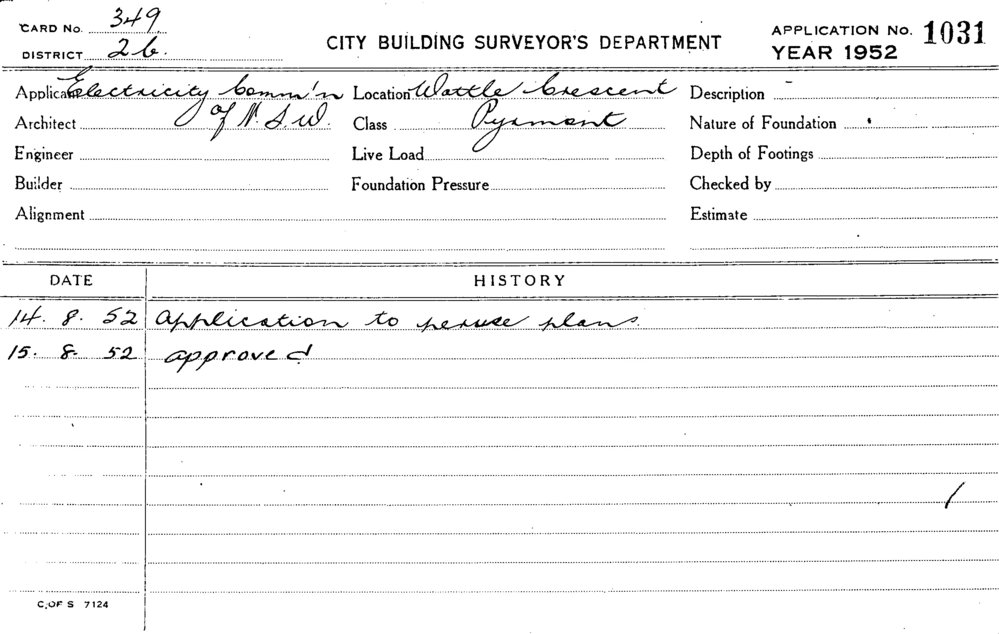 CARD No. 349
DISTRICT 26.
CITY BUILDING SURVEYOR'S DEPARTMENT
APPLICATION No. 1031
YEAR 1952
Applicant Electricity Comm'n of N.S.W. Location Wattle Crescent Description
Architect Class Pyrmont Nature of Foundation
Engineer Live Load Depth of Footings
Builder Foundation Pressure Checked by
Alignment Estimate
DATE HISTORY
14. 8. 52 Application to peruse plans.
15. 8. 52 approved
C. OF S 7124